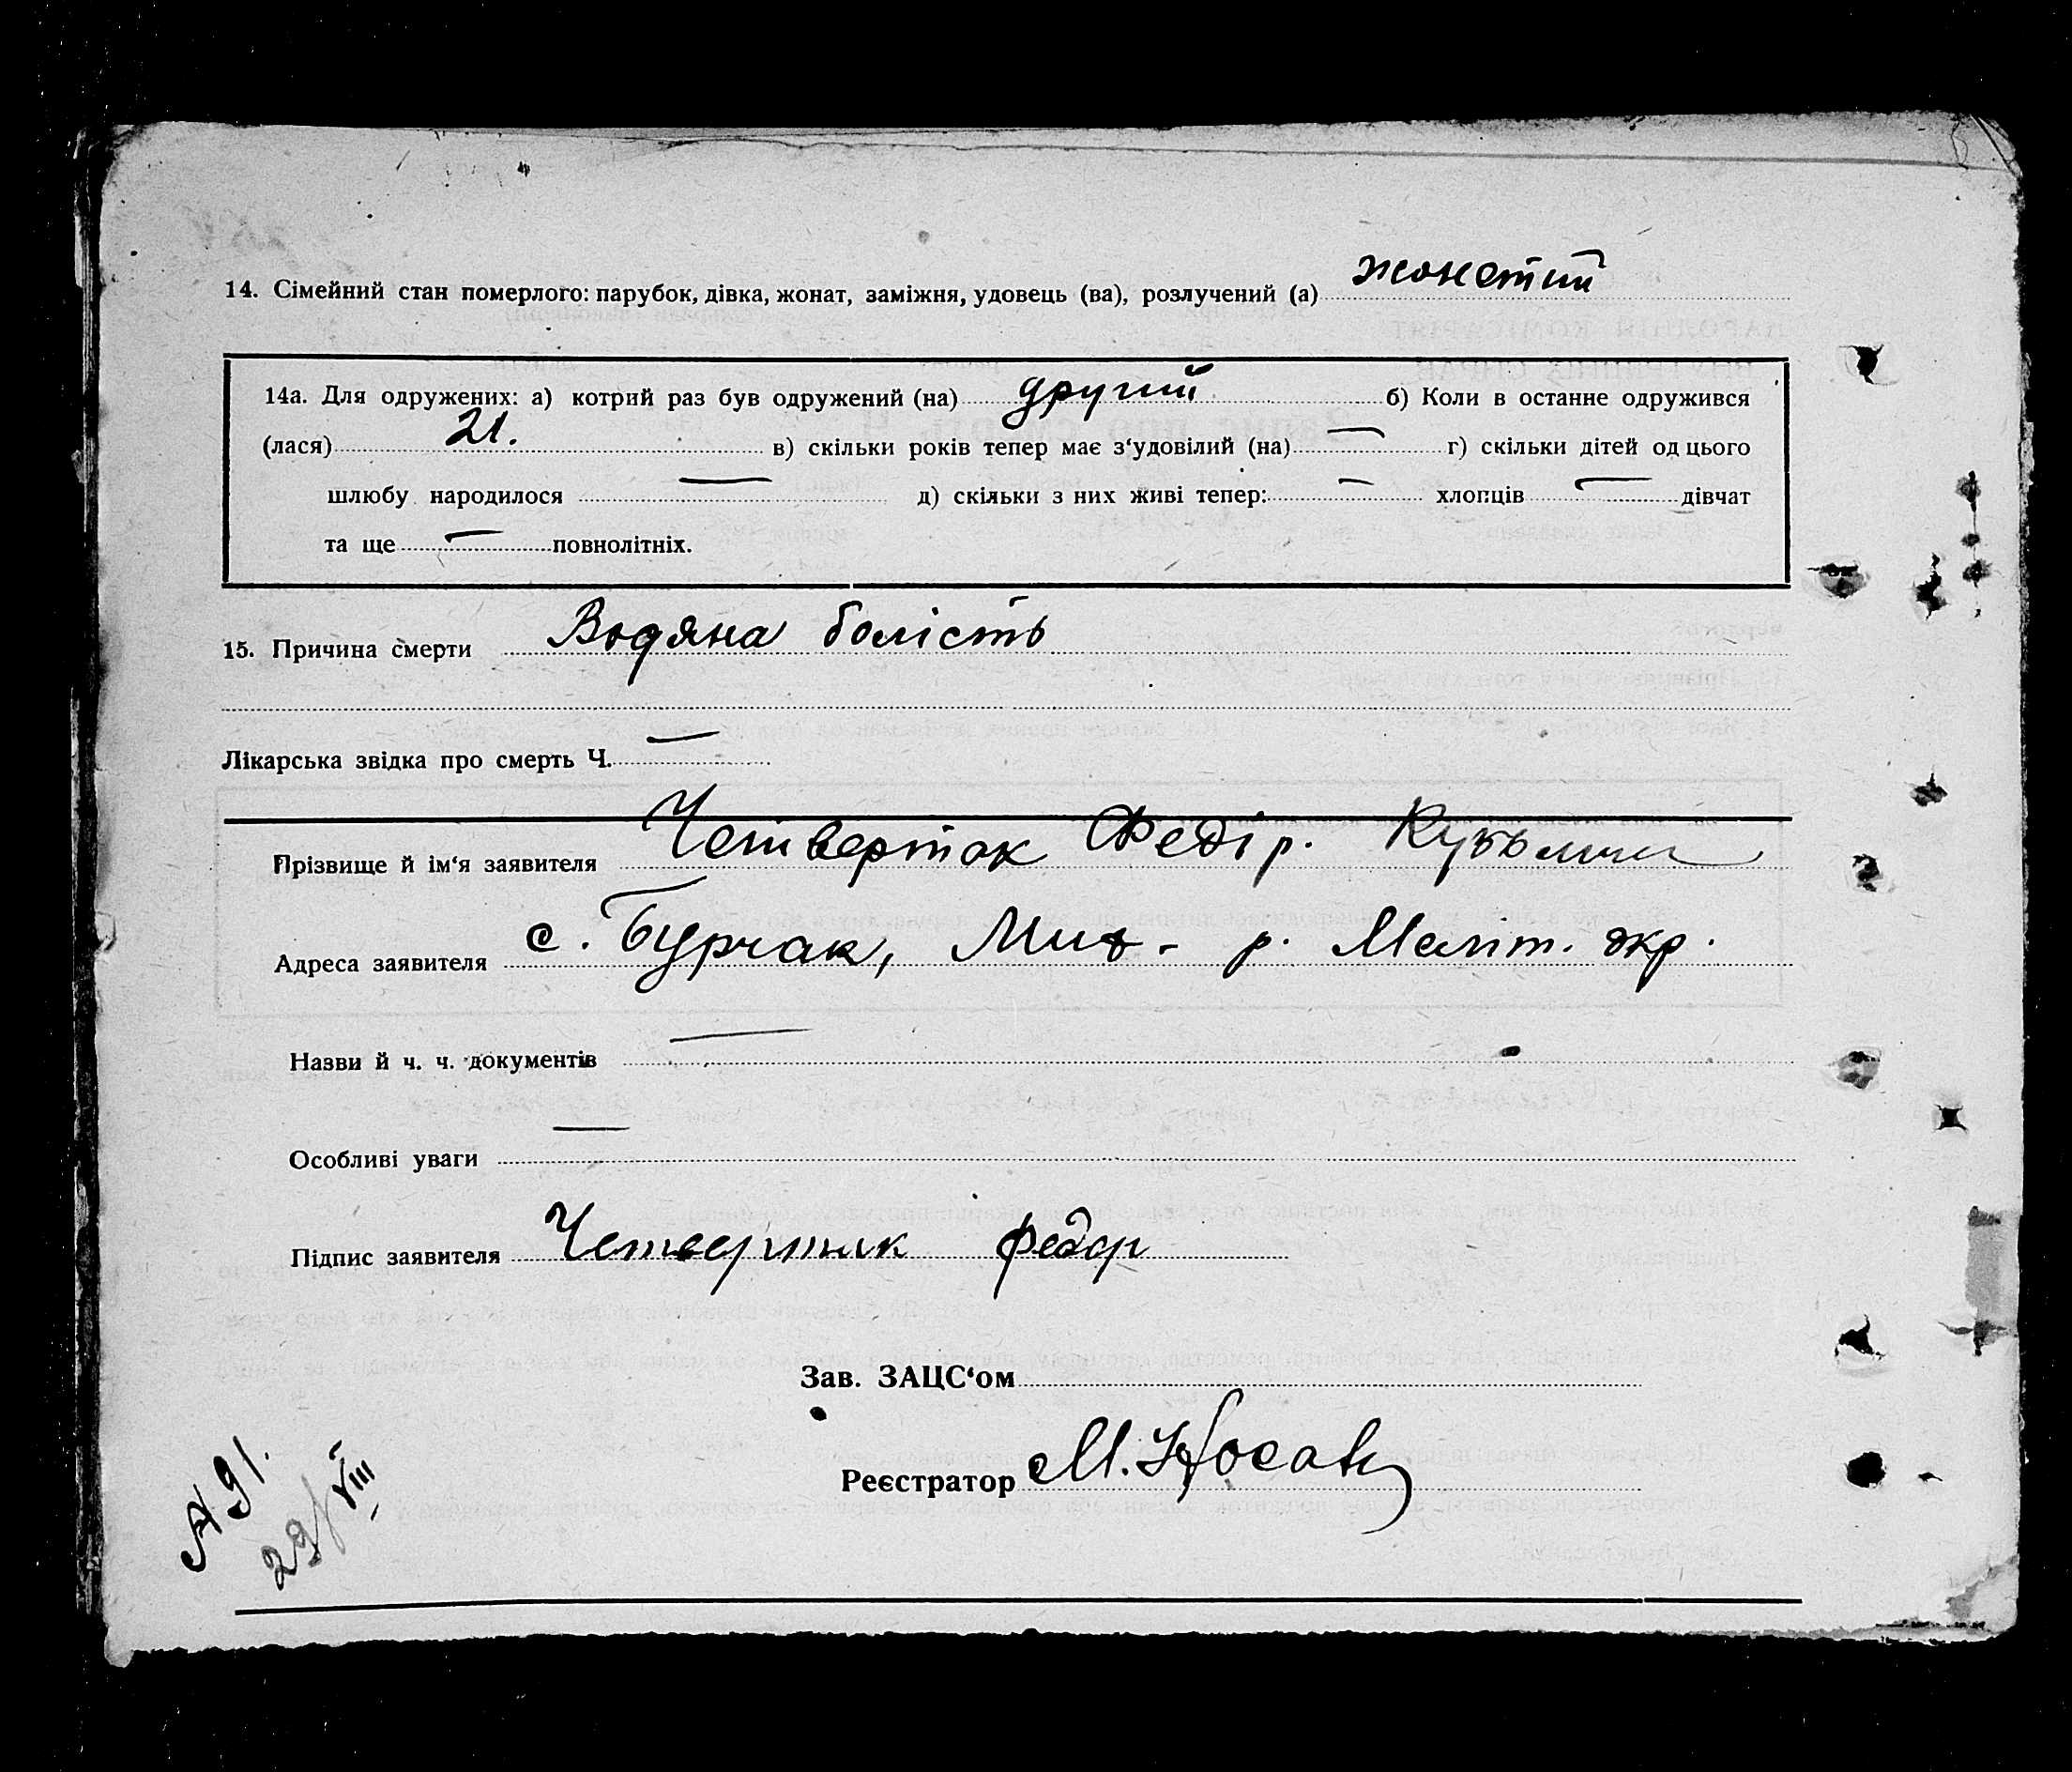 14. Сімейний стан померлого: парубок, дівка, жонат, заміжня, удовець (ва), розлучений (а) жонатий
14а. Для одружених: а) котрий раз був одружений (на) другий б) Коли в останне одружився
(лася) 21. в) скільки років тепер має з‘удовілий (на) — г) скільки дітей од цього
шлюбу народилося — д) скільки з них живі тепер: — хлопців — дівчат
та ще — повнолітніх.
15. Причина смерти Водяна болість
Лікарська звідка про смерть Ч. —
Прізвище й ім‘я заявителя Четверток Федір. Кузьмич
Адреса заявителя с. Бурчак, Мих- р. Меліт. окр.
Назви й ч. ч. документів —
Особливі уваги —
Підпис заявителя Четвертак Федор
Зав. ЗАЦС‘ом
Реєстратор М.
А 91.
29/VIII